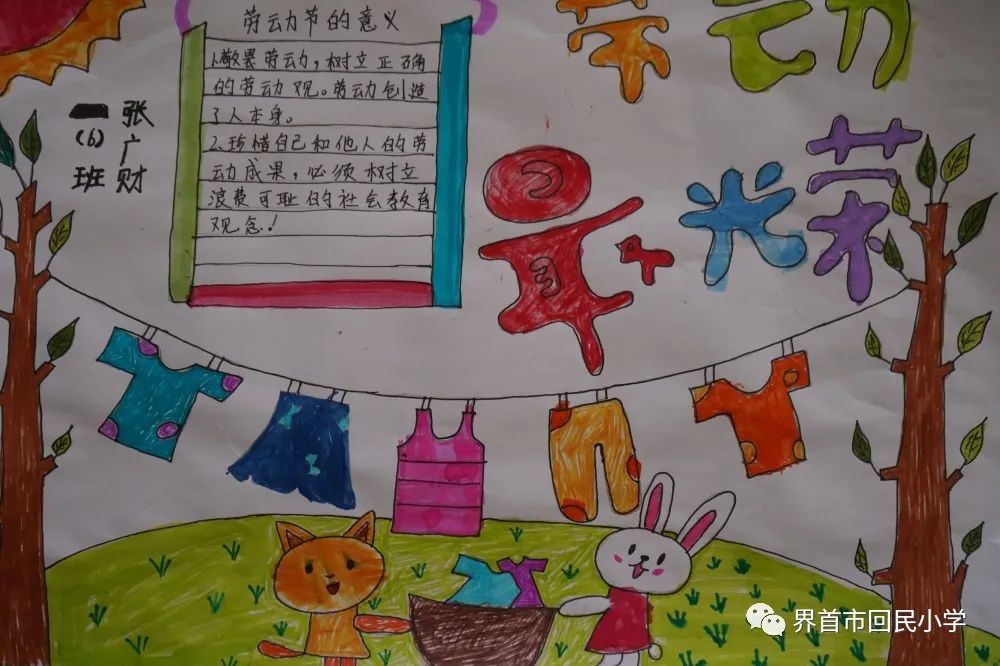 劳动
最
光荣
劳动节的意义
1.敬畏劳动,树立正确
的劳动观。劳动创造
了人本身。
2.珍惜自己和他人的劳
动成果,必须树立
浪费可耻的社会教育
观念!
一(6)班
张广财
界首市回民小学